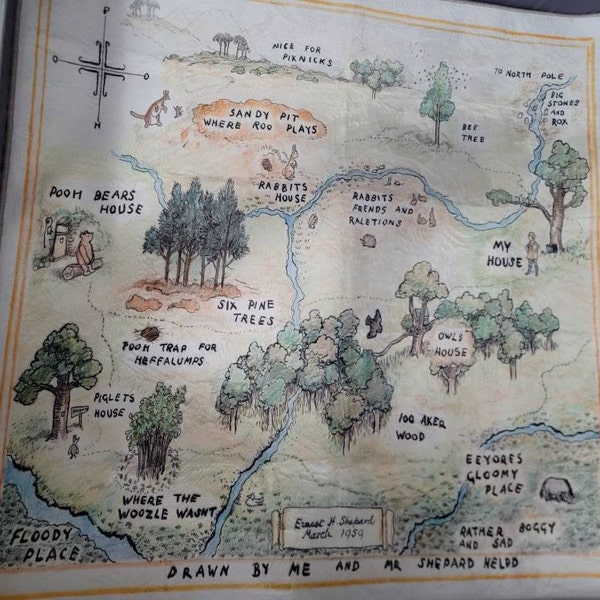 P
O O
H
NICE FOR
PIKNICKS
TO NORTH POLE
BIG
STONES
AND
ROX
SANDY PIT
WHERE ROO PLAYS
BEE
TREE
RABBITS
HOUSE
POOH BEARS
HOUSE
RABBITS
FRENDS AND
RALETIONS
MY
HOUSE
SIX PINE
TREES
POOH TRAP FOR
HEFFALUMPS
OWLS
HOUSE
PIGLETS
HOUSE
100 AKER
WOOD
EEYORES
GLOOMY
PLACE
WHERE THE
WOOZLE WASNT
FLOODY
PLACE
RATHER BOGGY
AND SAD
Ernest H. Shepard
March 1959
DRAWN BY ME AND MR SHEPARD HELPD